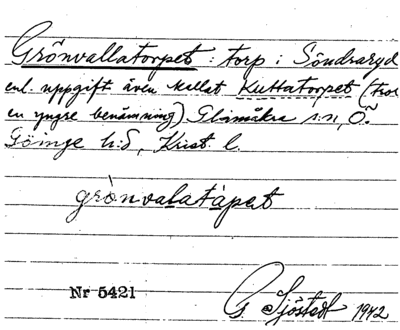 Grönvallatorpet : torp i Söndraryd
enl. uppgift även kallat Kuttatorpet (tror
en yngre benämning) Glimåkra s:n, Ö.
Göinge h:d, Krist. l.
grònvalatàpet
Nr 5421
G. Sjöstedt 1942